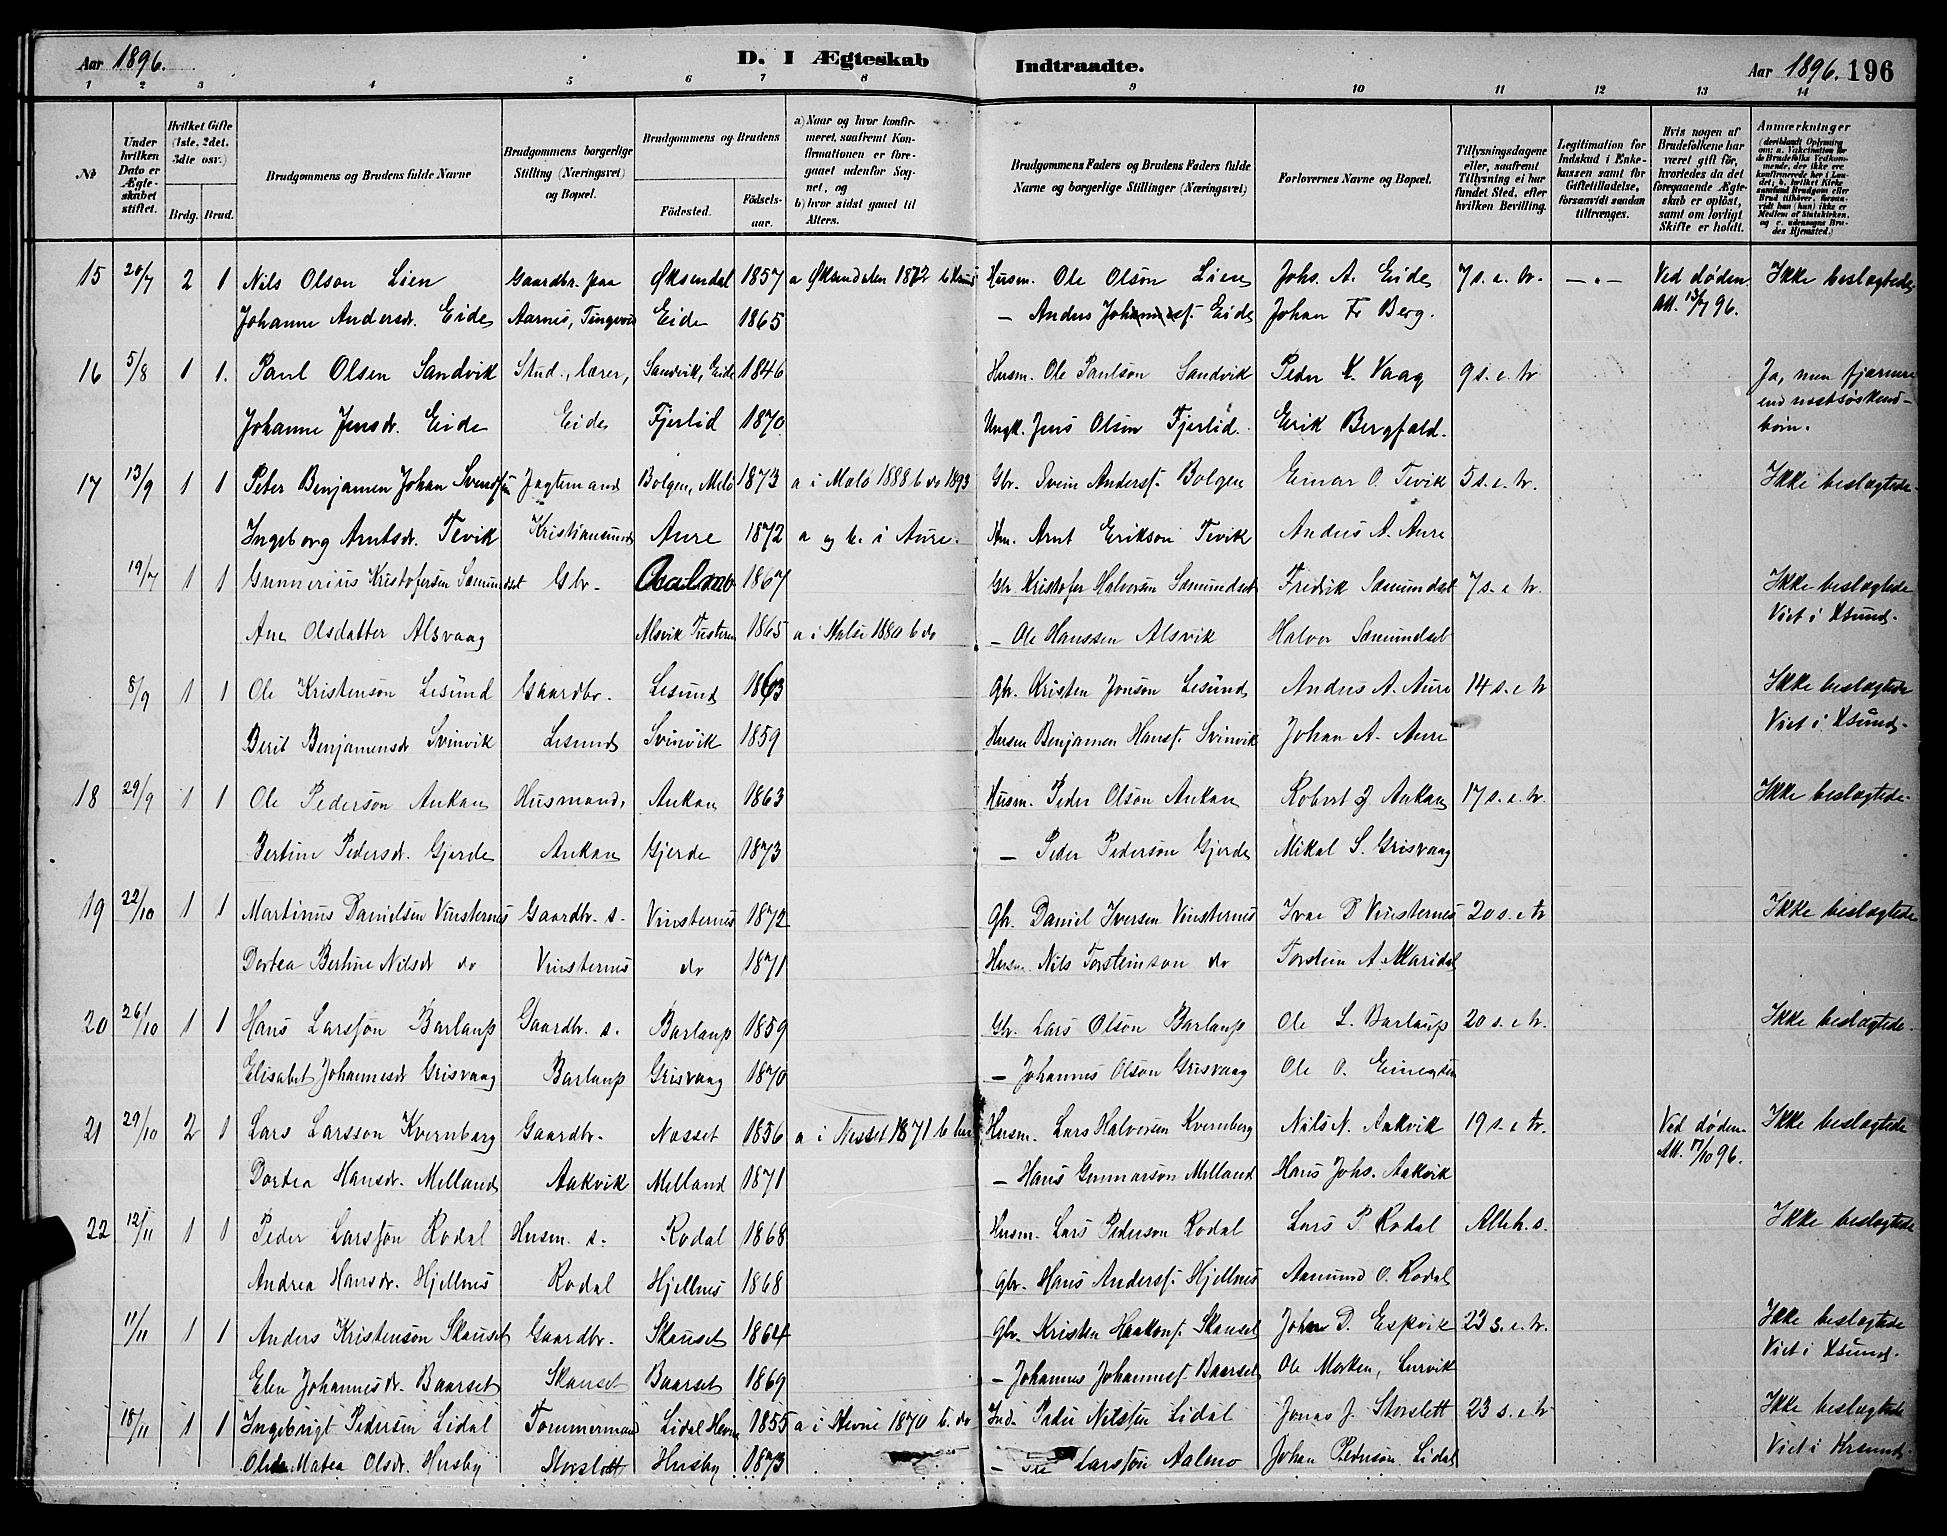 Aar 1896. D. I Ægteskab Indtraadte. Aar 1896. 196
1 2 3 4 5 6 7 8 9 10 11 12 13 14
No
Under hvilken Dato er Ægteskabet stiftet.
Hvilket Gifte (1ste, 2det, 3die osv.)
Brdg. Brud.
Brudgommens og Brudens fulde Navne
Brudgommens borgerlige Stilling (Næringsvei) og Bopæl.
Brudgommens og Brudens
Fødested. Fødsels-aar.
a) Naar og hvor konfirmeret, saafremt Konfirmationen er foregaaet udenfor Sognet, og
b) hvor sidst gaaet til Alters.
Brudgommens Faders og Brudens Faders fulde Navne og borgerlige Stillinger (Næringsvei)
Forlovernes Navne og Bopæl.
Tillysningsdagene eller, saafremt Tillysning ei har fundet Sted, efter hvilken Bevilling.
Legitimation for Indskud i Enkekassen samt for Giftetilladelse, forsaavidt saadan tiltrænges.
Hvis nogen af Brudefolkene har været gift før, hvorledes da det foregaaende Ægteskab er opløst, samt om lovligt Skifte er holdt.
Anmærkninger (deriblandt Oplysning om: a. Vakcination for de Brudefolks Vedkommende, der ikke ere konfirmerede her i Landet; b. hvilket Kirkesamfund Brudgom eller Brud tilhører, forsaavidt han (hun) ikke er Medlem af Statskirken, og c. udensogns Brudes Hjemsted.)
15 20/7 2 1 Nils Olson Lien Gaardbr. paa Øksendal 1857 a Øksendalen 1872 b Husm. Ole Olson Lien Johs. A. Eide 7 s. e. tr. — . — Ved døden Ikke beslægtede
Johanne Andersdr. Eide Aarnes, Tingvold Eide 1865 — Anders Johannesf. Eide Johan Fr Berg. Att. 13/7 96.
16 5/8 1 1. Paul Olsen Sandvik Stud., lærer, Sandvik, Eide 1846 Husm. Ole Paulson Sandvik Peder Vaag 9 s. e. tr Ja, men fjærnere
Johanne Jensdr. Eide Eide Fjerlid 1870 Ungk. Jens Olson Fjerlid. Erik Bergfald. end næstsøskendbörn.
17 13/9 1 1 Peter Benjamen Johan Svendsen Jagtemand Bolgen, Melö 1873 a i Melö 1888 b do 1893 Gbr. Svein Andersf. Bolgen Einar O. Tevik 5 s. e. tr. Ikke beslægtede.
Ingeborg Arntsdr. Tevik Kristiansund Aure 1872 a og b. i Aure. Hm. Arnt Erikson Tevik Anders A. Aure
19/7 1 1 Gunnerius Kristofersen Sæmundset Gbr. 1867 Gbr Kristofer Halvorsen Sæmundset Fredrik Sæmundset 7 s. e. tr. Ikke beslægtede
Ane Olsdatter Alsvaag Alsvik Tusteren 1865 a i Halse 1880 b do — Ole Hanssen Alsvik Halvor Sæmundset Viet i Ksund.
8/9 1 1 Ole Kristenson Lesund Gaardbr. Lesund 1863 Gbr. Kristen Jonson Lesund Anders A. Aure 14 s. e tr Ikke beslægtede
Berit Benjamensdr Svinvik Lesund Svinvik 1859 Husm Benjamen Hansf. Svinvik Johan A. Aure Viet i Ksund.
18 29/9 1 1 Ole Pederson Aukan Husmand, Aukan 1863 Husm. Peder Olson Aukan Robert J Aukan 17 s. e. tr. Ikke beslægtede.
Bertine Pedersdr. Gjerde Aukan Gjerde 1873 — Peder Pederson Gjerde Mikal S. Grisvaag
19 22/10 1 1 Martinus Danielsen Vinsternes Gaardbr. s. Vinsternes 1872 Gbr. Daniel Iversen Vinsternes Ivar D Vinsternes 20 s. e tr Ikke beslægtede
Dortea Bertine Nilsdr do Vinsternes do 1871 Husm. Nils Torsteinson do Torstein A. Maridal
20 26/10 1 1 Hans Larsson Barlaup Gaardbr. s. Barlaup 1859 Gbr. Lars Olson Barlaup Ole L. Barlaup 20 s. e tr. Ikke beslægtede.
Elisabet Johannesdr Grisvaag Barlaup Grisvaag 1870 — Johannes Olson Grisvaag Ole O.
21 29/10 2 1 Lars Larsson Kvernberg Gaardbr. Nesset 1856 a i Nesset 1871 b her Husm. Lars Halvorsen Kvernberg Nils N. Aakvik 19 s. e tr. Ved døden. Ikke beslægtede
Dortea Hansdr. Melland Aakvik Melland 1871 — Hans Gunnarson Melland Hans Johs. Aakvik Att. 17/10 96.
22 12/11 1 1 Peder Larsson Rodal Husm. s. Rodal 1868 Husm. Lars Pederson Rodal Lars P Rodal Alleh. s. Ikke beslægtede
Andrea Hansdr. Hjellnes Rodal Hjellnes 1868 Gbr. Hans Andersf. Hjellnes Aamund O. Rodal
11/11 1 1 Anders Kristenson Skauset Gaardbr. Skauset 1864 Gbr. Kristen Haakonf. Skauset Johan D. Espvik 23 s. e. tr. Ikke beslægtede
Elen Johannesdr. Baarset Skauset Baarset 1869 — Johannes Johannesf. Baarset Ole Morken, Lurvik Viet i Ksund.
18/11 1 1 Ingebrigt Pedersen Lidal Tømmermand Lidal Hevne 1855 a i Hevne 1870 b. do Ind. Peder Nilssen Lidal Jonas J. Skorslett 23 s. e tr Ikke beslægtede
Matea Olsdr. Husby Skorslett Husby 1873 — Larsson Aalmo Johan Pederson Lidal Viet i Krsund.